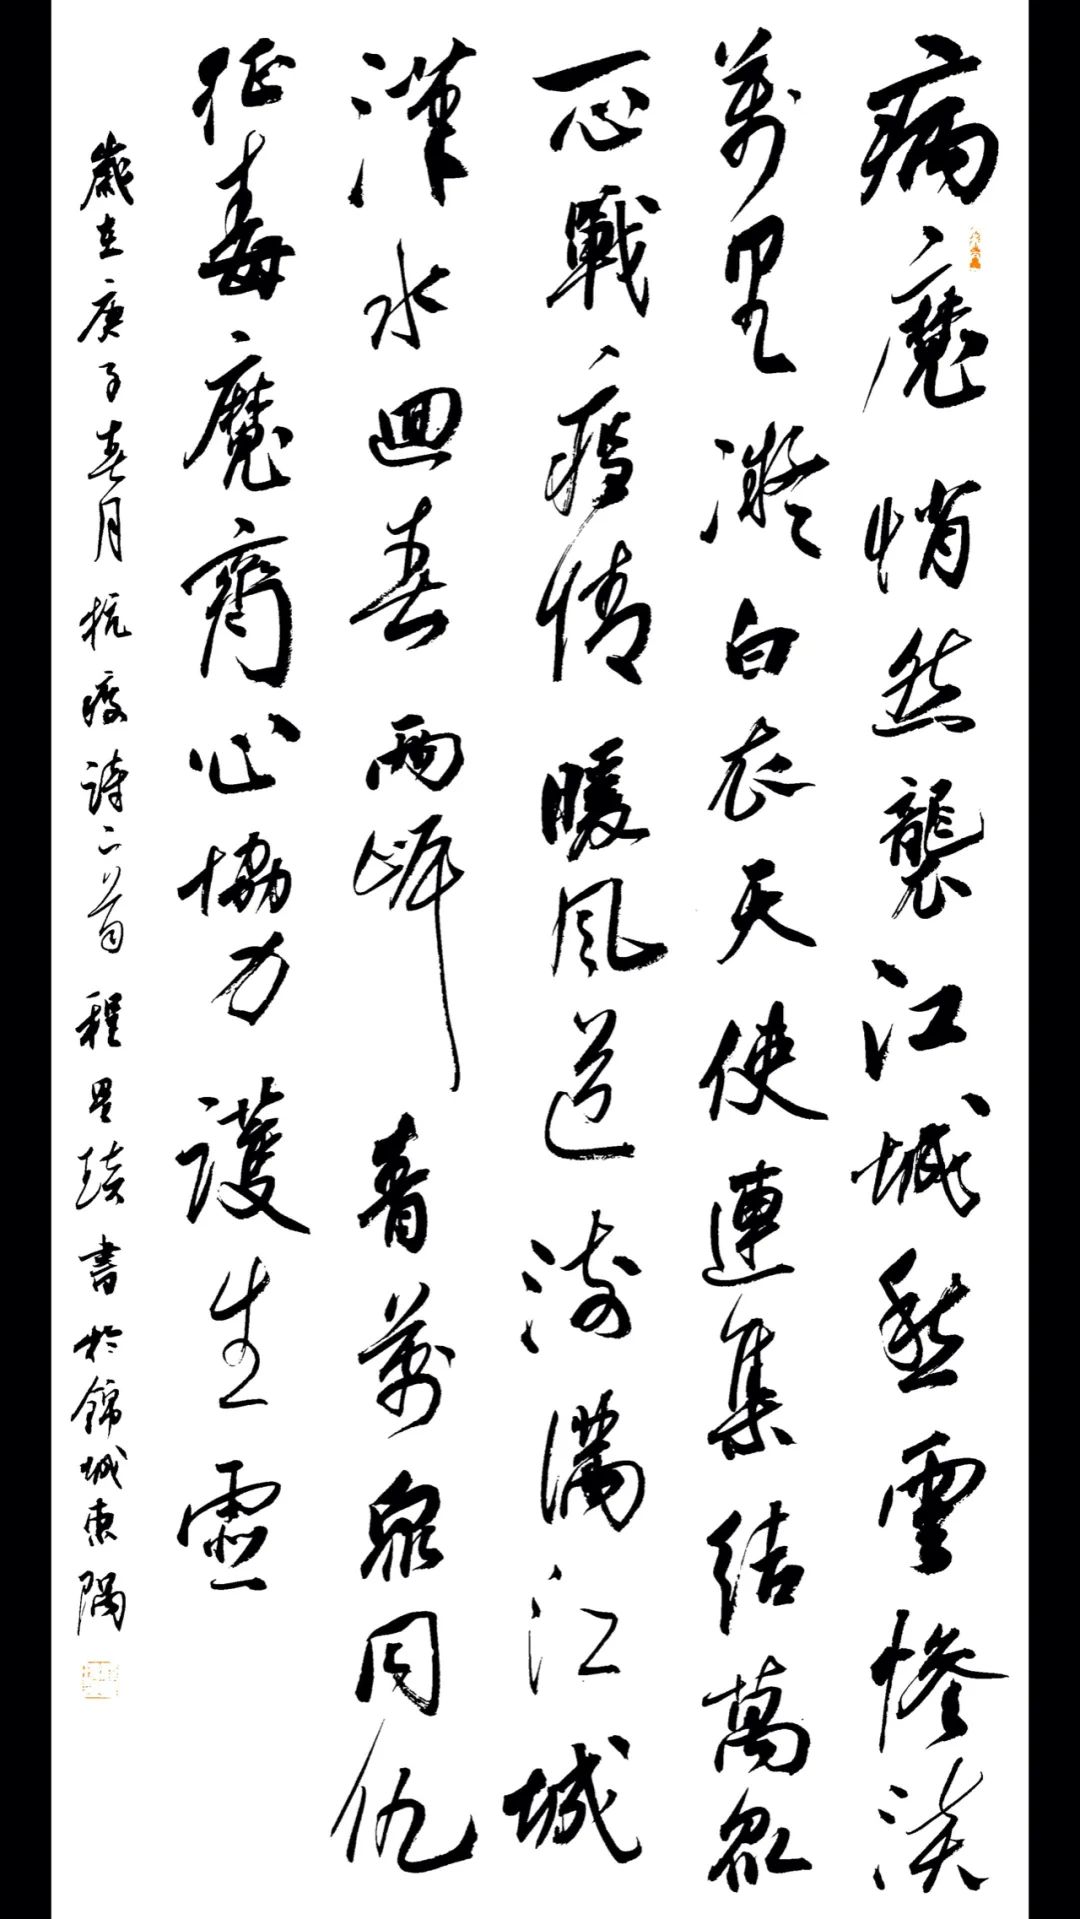 病魔悄然襲江城愁雲慘淡
萬里凝白衣天使連集結萬眾
一心戰疫情暖風送濤滿江城
漢水迴春兩岸青萬眾同仇
征毒魔齊心協力護生靈
歲在庚子春月抗疫詩二首程書於錦城東隅